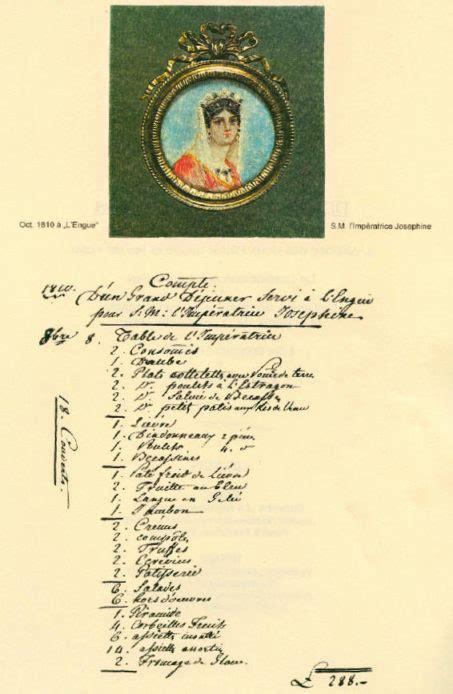 Oct. 1810 à „L'Engue"
S.M. l'Impératrice Josephine
1810.
Compte
D'un Grand Déjeuner Servi à l'Engue
pour S: M: l'Impératrice Josephine
8bre 8. Table de l'Impératrice
2. Consomés
1. Daube
2. Plats cottelettes aux Pome de terre
2. d°. poulets à l'Estragon
2. d°. Salmi de Becasses
2. d°. petit patés aux
18. Couverts.
1. Lievre
1. Dindonneaux 2 pieces
1. Poulets 4. d°
1. Becassines
1. Paté froid de lièvre
2. Truitte au Bleu
1. Langue en Gelée
1. Jambon
2. Crêmes
2. compôtes
2. Truffes
2. Ecrevices
2. Patisserie
6. Salades
6. hors d'œuvres
1. Piramide
4. Corbeilles Fruits
6. assiette
14. assiette assortie
2. Fromage de Glace
£ 288.-